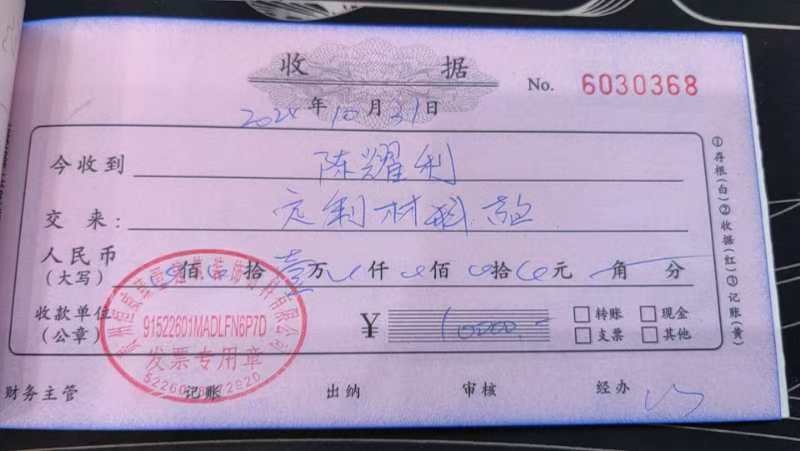 收据
No. 6030368
2024年10月31日
今收到 陈耀利
交来: 定制材料款
人民币
(大写) 佰 拾壹万 仟 佰 拾 元 角 分
收款单位
(公章)
¥ 10000.-
转账 现金
支票 其他
财务主管 记账 出纳 审核 经办
①存根(白)②收据(红)③记账(黄)
91522601MADLFN6P7D
发票专用章